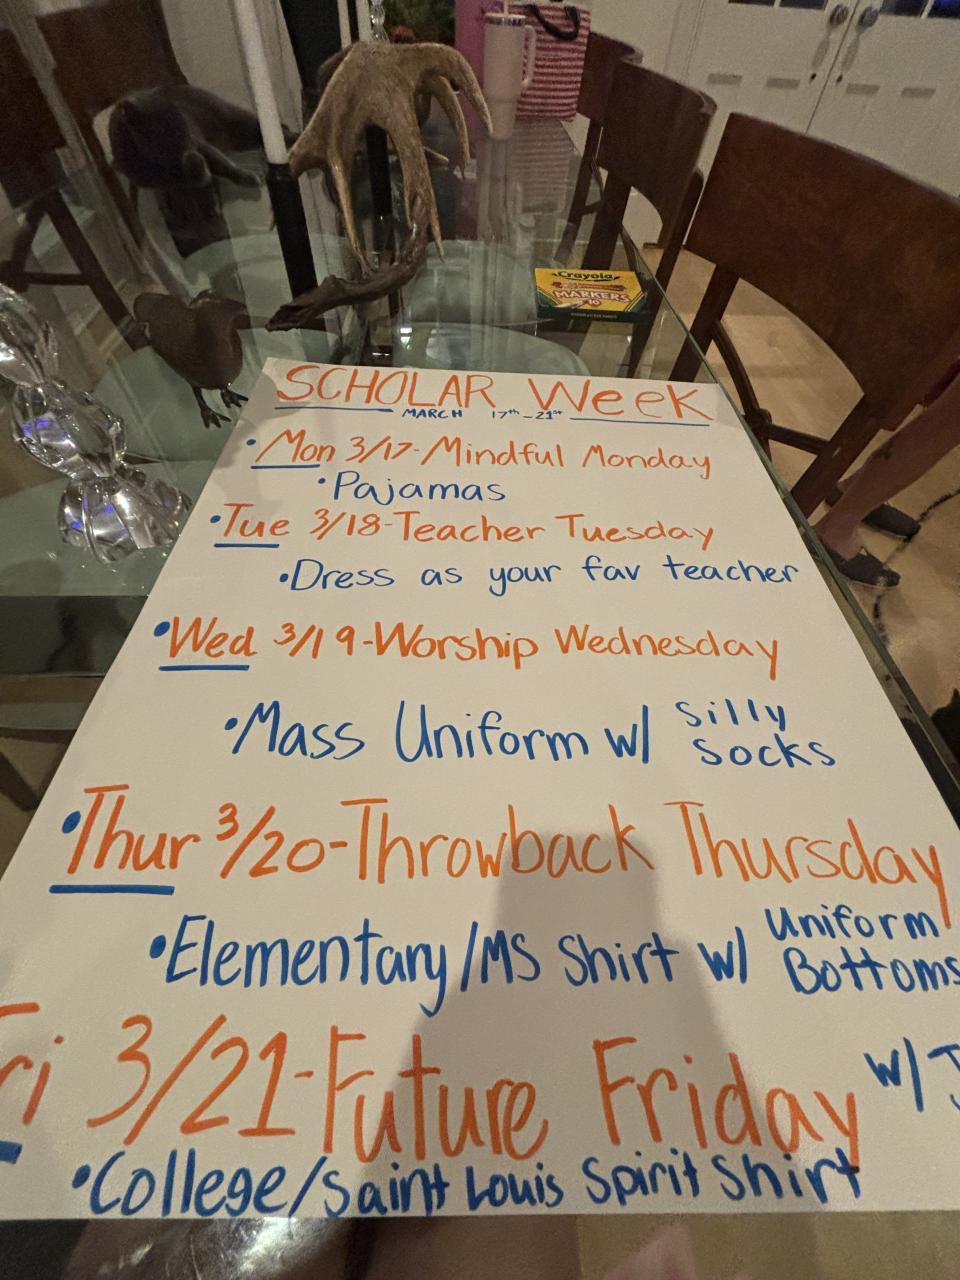 Crayola
MARKERS
10
SCHOLAR Week
MARCH 17th-21st
• Mon 3/17-Mindful Monday
• Pajamas
• Tue 3/18-Teacher Tuesday
• Dress as your fav teacher
• Wed 3/19-Worship Wednesday
• Mass Uniform w/ Silly
Socks
• Thur 3/20-Throwback Thursday
• Elementary/MS Shirt w/ Uniform
Bottoms
Fri 3/21-Future Friday
w/
• College/Saint Louis Spirit Shirt